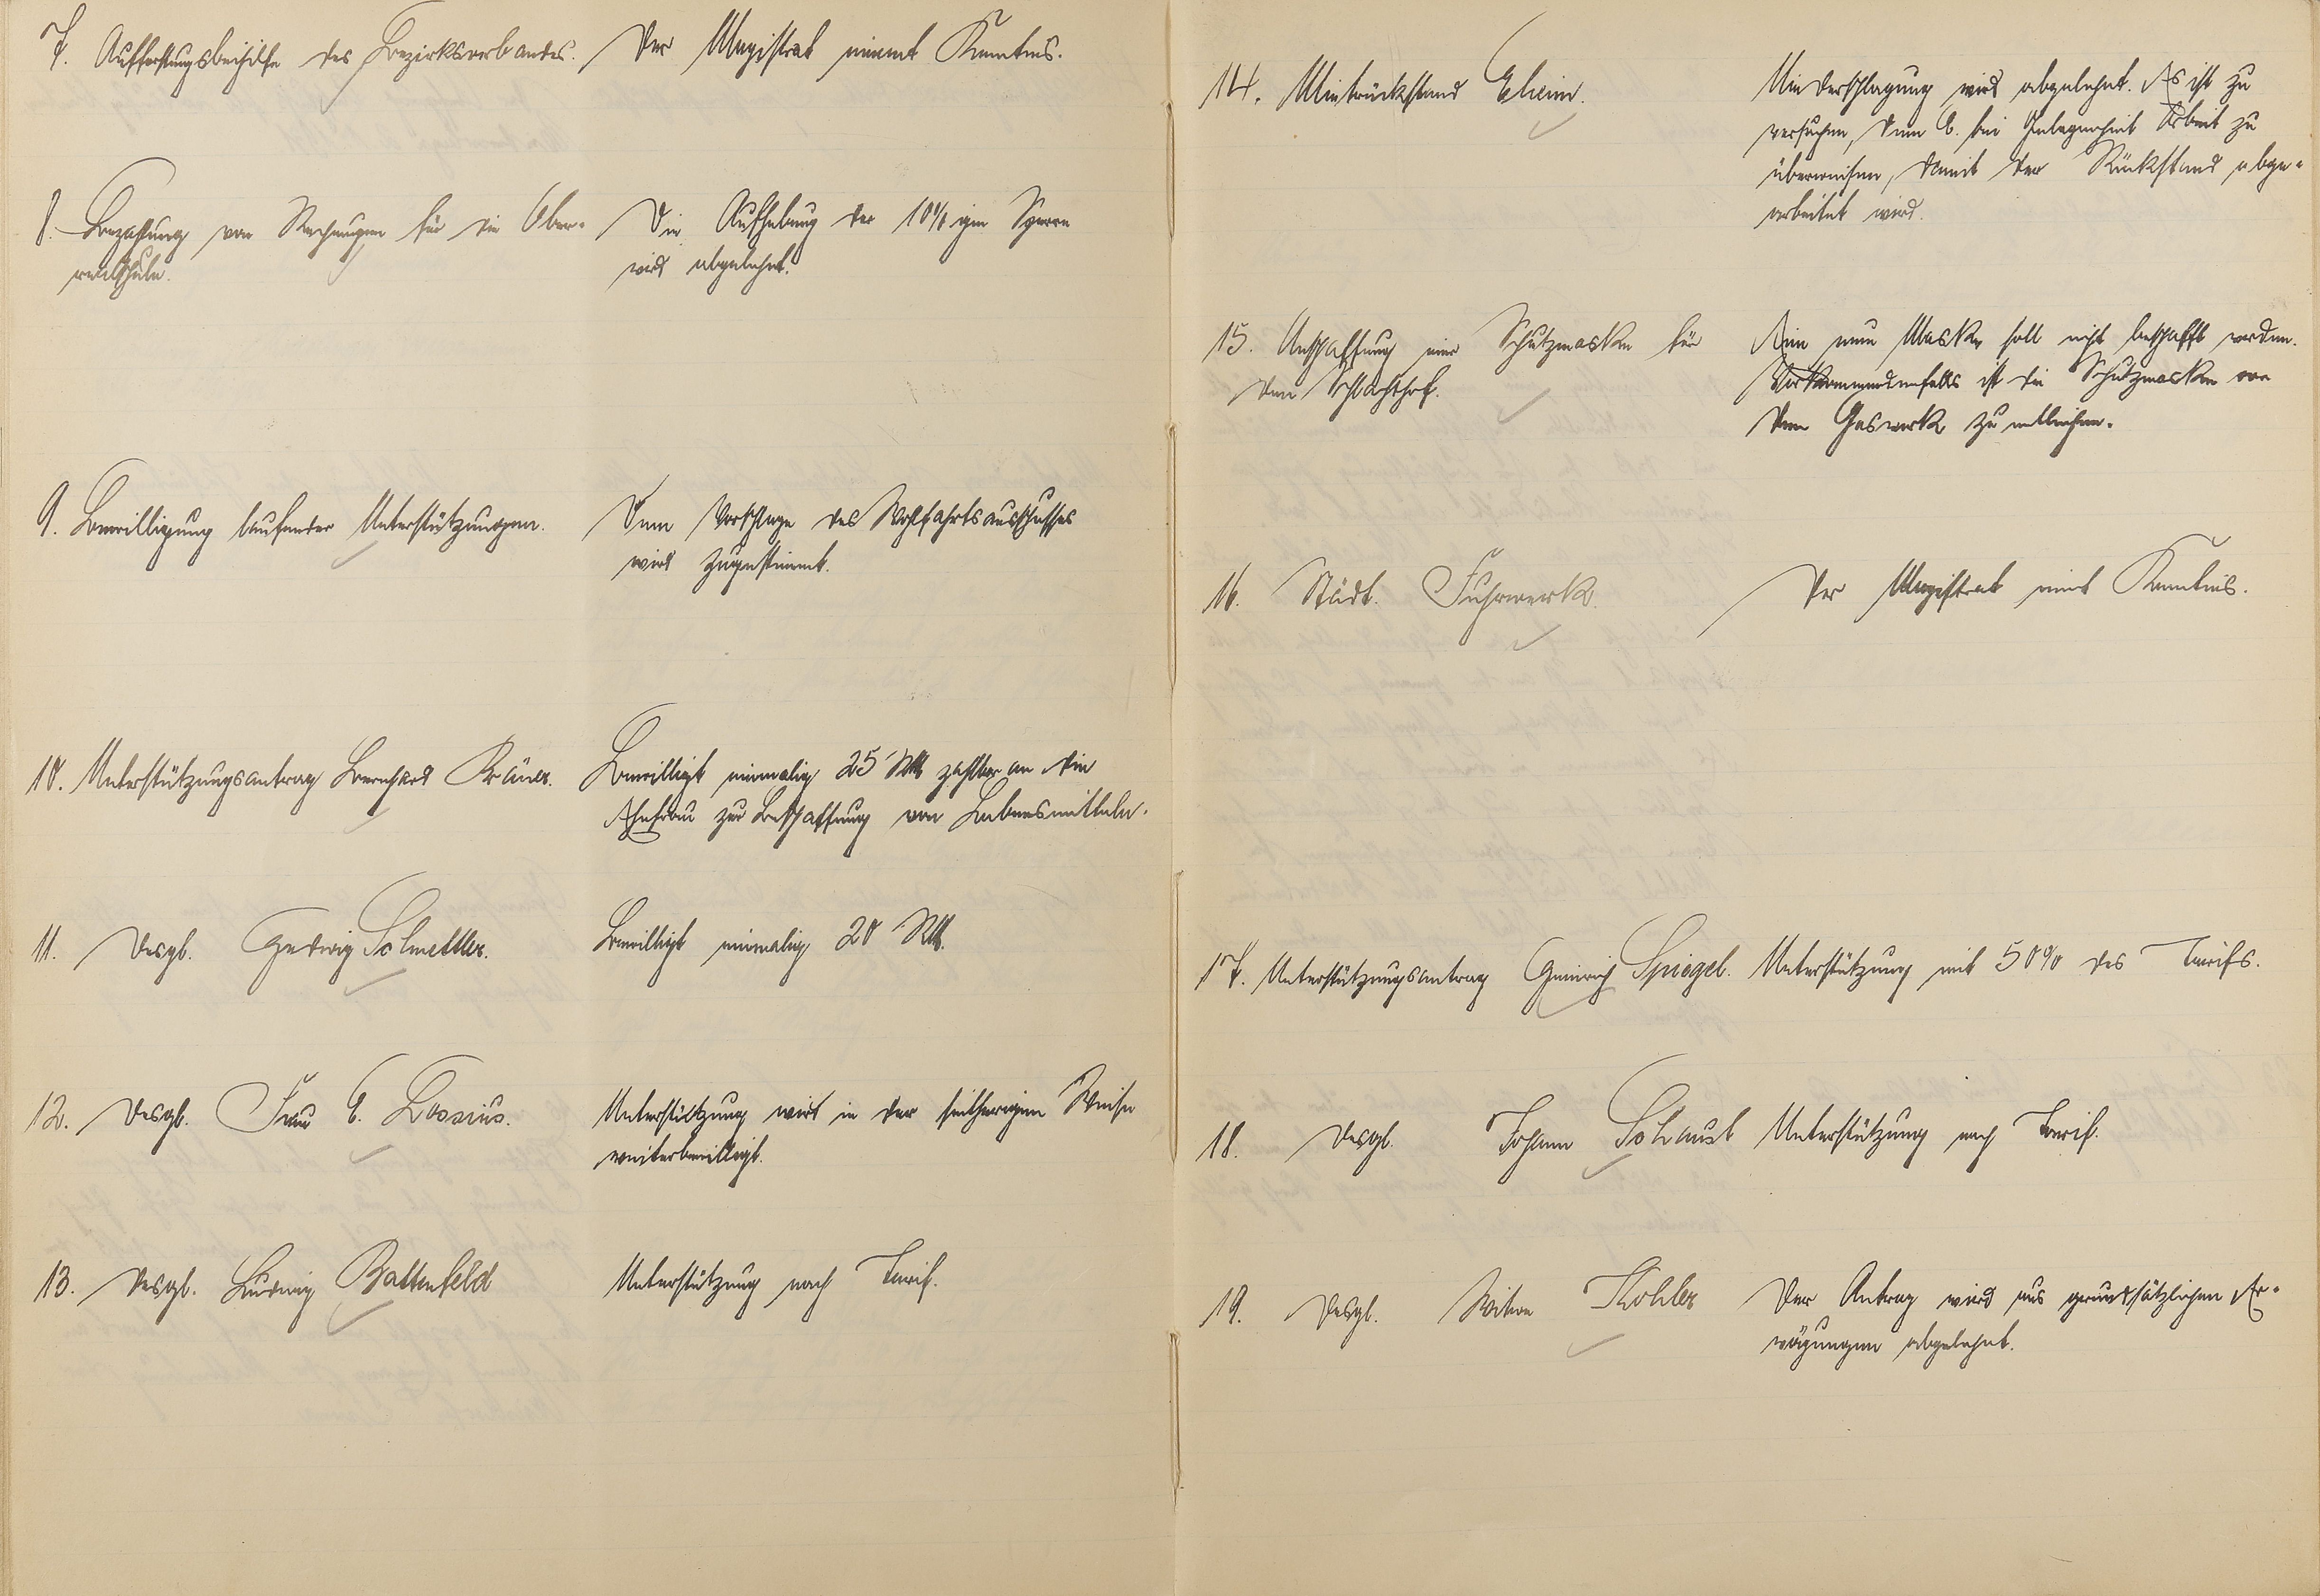 7. Aufforstungsbeihilfe des Bezirksverbandes.
Der Magistrat nimmt Kenntnis.
8. Bezahlung von Rechnungen für die Ober-
realschule.
Die Aufhebung der 10% igen Sperre
wird abgelehnt.
9. Bewilligung laufender Unterstützungen.
Dem Vorschlage des Wohlfahrtsausschusses
wird zugestimmt.
10. Unterstützungsantrag Bernhard Bräuer.
Bewilligt einmalig 25 RM zahlbar an die
Ehefrau zur Beschaffung von Lebensmitteln.
11. Desgl. Hedwig
Bewilligt einmalig 20 RM.
12. Desgl. Frau C. Lossius.
Unterstützung wird in der seitherigen Weise
weiterbewilligt.
13. Desgl. Ludwig Battenfeld
Unterstützung nach Tarif.
14. Mietrückstand Eheim.
Niederschlagung wird abgelehnt. Es ist zu
versuchen, dem E. bei Gelegenheit Arbeit zu
überweisen, damit der Rückstand abge-
arbeitet wird.
15. Anschaffung einer Schutzmaske für
den Schlachthof.
Eine neue Maske soll nicht beschafft werden.
Vorkommendenfalls ist die Schutzmaske von
dem Gaswerk zu entleihen.
16. Städt. Fuhrwerk.
Der Magistrat nimt Kenntnis.
17. Unterstützungsantrag Heinrich Spiegel.
Unterstützung mit 50% des Tarifs.
18. Desgl. Johann Schaust
Unterstützung nach Tarif.
19. Desgl. Witwe Kohler
Der Antrag wird aus grundsätzlichen Er-
wägungen abgelehnt.